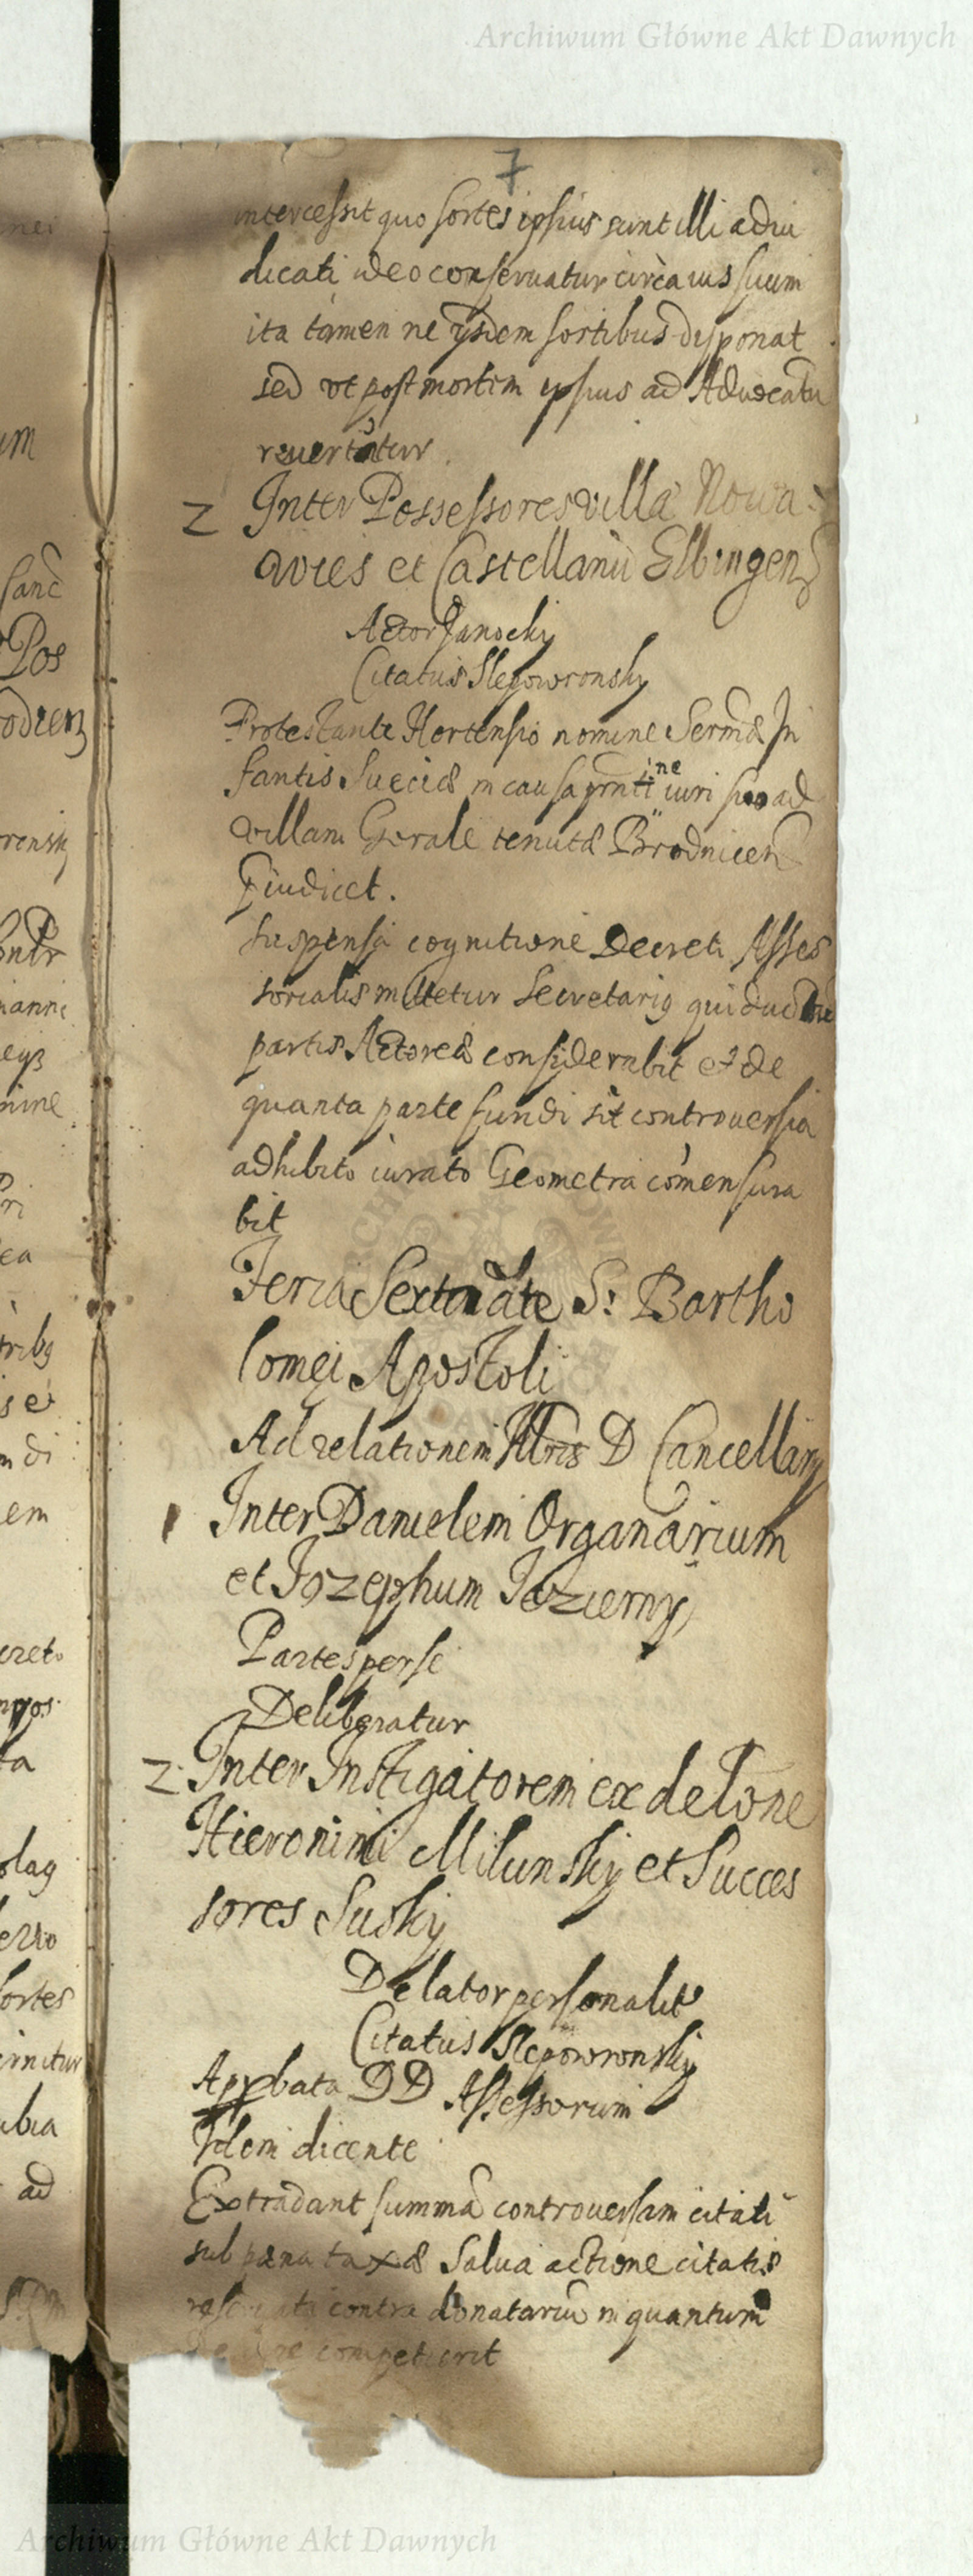 Archiwum Główne Akt Dawnych
7
intercessit quo sortes ipsius sunt illi adiu
dicati ideo conseruatur circa ius suum
ita tamen ne ijsdem sortibus disponat
sed vt post mortem ipsius ad Aduocatū
reuertātur
2 Inter Possessores villæ Nowa
wies et Castellanū Elbingen
Actor Janocky
Citatus Slepowronsky
Protestante Hortensio nomine Sermæ In
fantis Sueciæ in causa prnti ne iuri suo ad
villam Gorale tenutæ Brodnicen
Piudicet.
Suspensa cognitione Decreti Asses
sorialis mittetur Secretarius qui ductus
partis Actoreæ considerabit et de
quanta parte fundi sit controuersia
adhibito iurato Geometra com̄ensura
bit
Feria Sexta āte S: Bartho
lomei Apostoli
Ad relationem Illris D Cancellarij
1 Inter Danielem Organarium
et Jozephum Jezierny
Partes per se
Deliberatur
2 Inter Instigatorem ex delōne
Hieronimi Milunsky et Succes
sores Susky
Delator personalit
Citatus Slepowronsky
Apqbata DD Assessorum
Idem dicente
Extradant summā controuersam citati
sub pæna taxæ Salua actione citatis
contra donatariū in quantum
de iure competierit
nei
um
Sanc
Pos
rodien
rensky
ianni
mine
ea
tribus
em
creto
ta
sortes
ad
Archiwum Główne Akt Dawnych